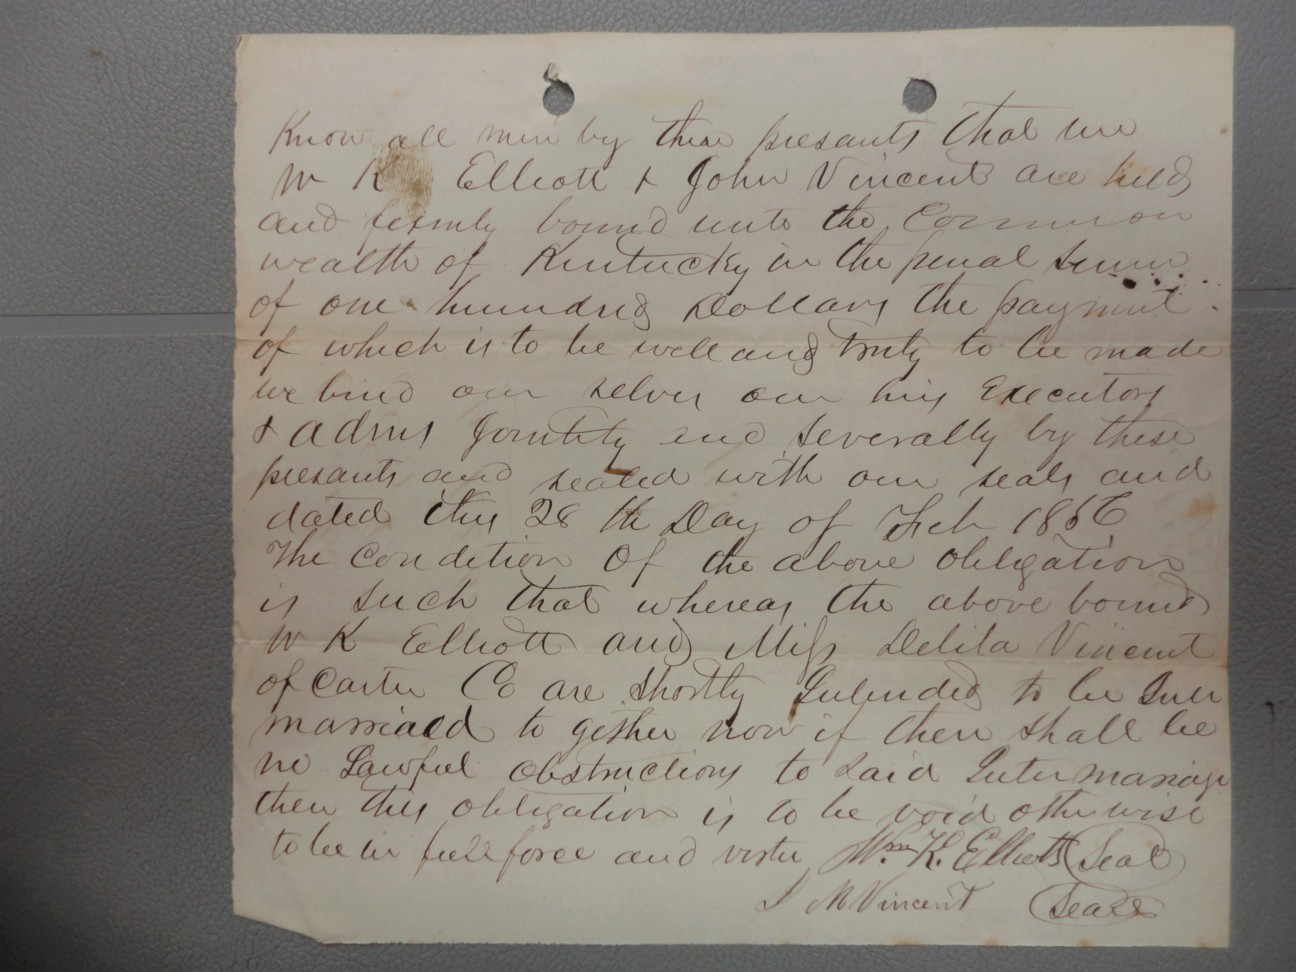 Know all men by these presants that we
W K Elliott & John Vincent are held
and firmly bound unto the Common
wealth of Kentucky in the penal sum
of one hundred Dollars the payment
of which is to be well and truly to be made
we bind our selves our hirs Executors
& admrs Jointity and severally by these
presants and sealed with our seals and
dated this 28 th Day of Feb 1866
The condition Of the above obligation
is such that whereas the above bound
W K Elliott and Miss Delila Vincent
of Carter Co are shortly Intended to be Inter
marriaed to gether now if there shall be
no Lawful obstructions to said Inter marriage
then this obligation is to be void otherwise
to be in full force and virtu Wm K. Elliott Seal
J M Vincent Seal